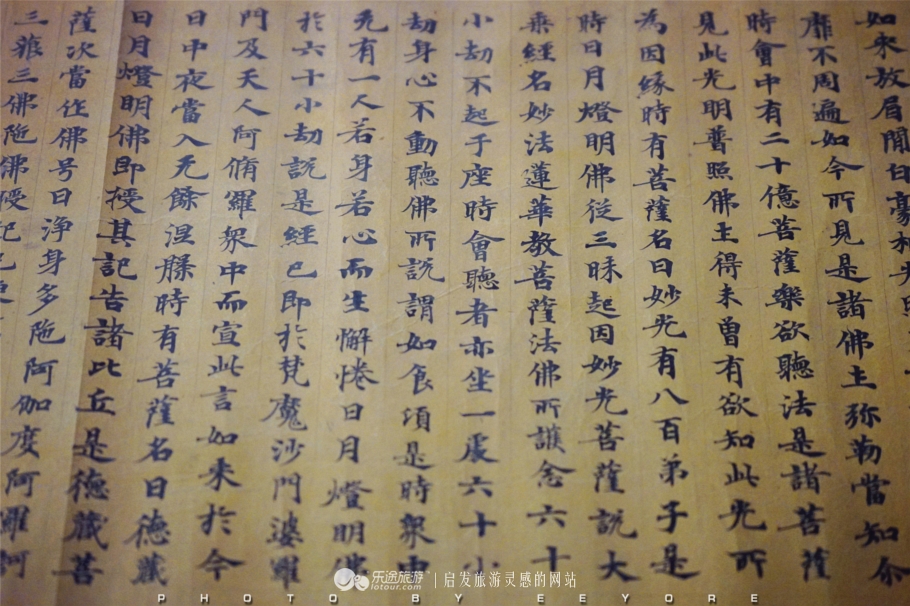 如来放眉閒白豪相光照
靡不周遍如今所見是諸佛土弥勒當知尒
時會中有二十億菩薩樂欲聽法是諸菩薩
見此光明普照佛土得未曾有欲知此光所
為因緣時有菩薩名曰妙光有八百弟子是
時日月燈明佛從三昧起因妙光菩薩說大
乘經名妙法蓮華教菩薩法佛所護念六十
小劫不起于座時會聽者亦坐一處六十小
劫身心不動聽佛所說謂如食頃是時衆中
无有一人若身若心而生懈惓日月燈明佛
於六十小劫說是經已即於梵魔沙門婆羅
門及天人阿脩羅衆中而宣此言如来於今
日中夜當入无餘涅槃時有菩薩名曰德藏
日月燈明佛即授其記告諸比丘是德藏菩
薩次當作佛号曰浄身多陁阿伽度阿羅訶
三藐三佛陁佛授記已便
乐途旅游 lotour.com 启发旅游灵感的网站
PHOTO BY EEYORE